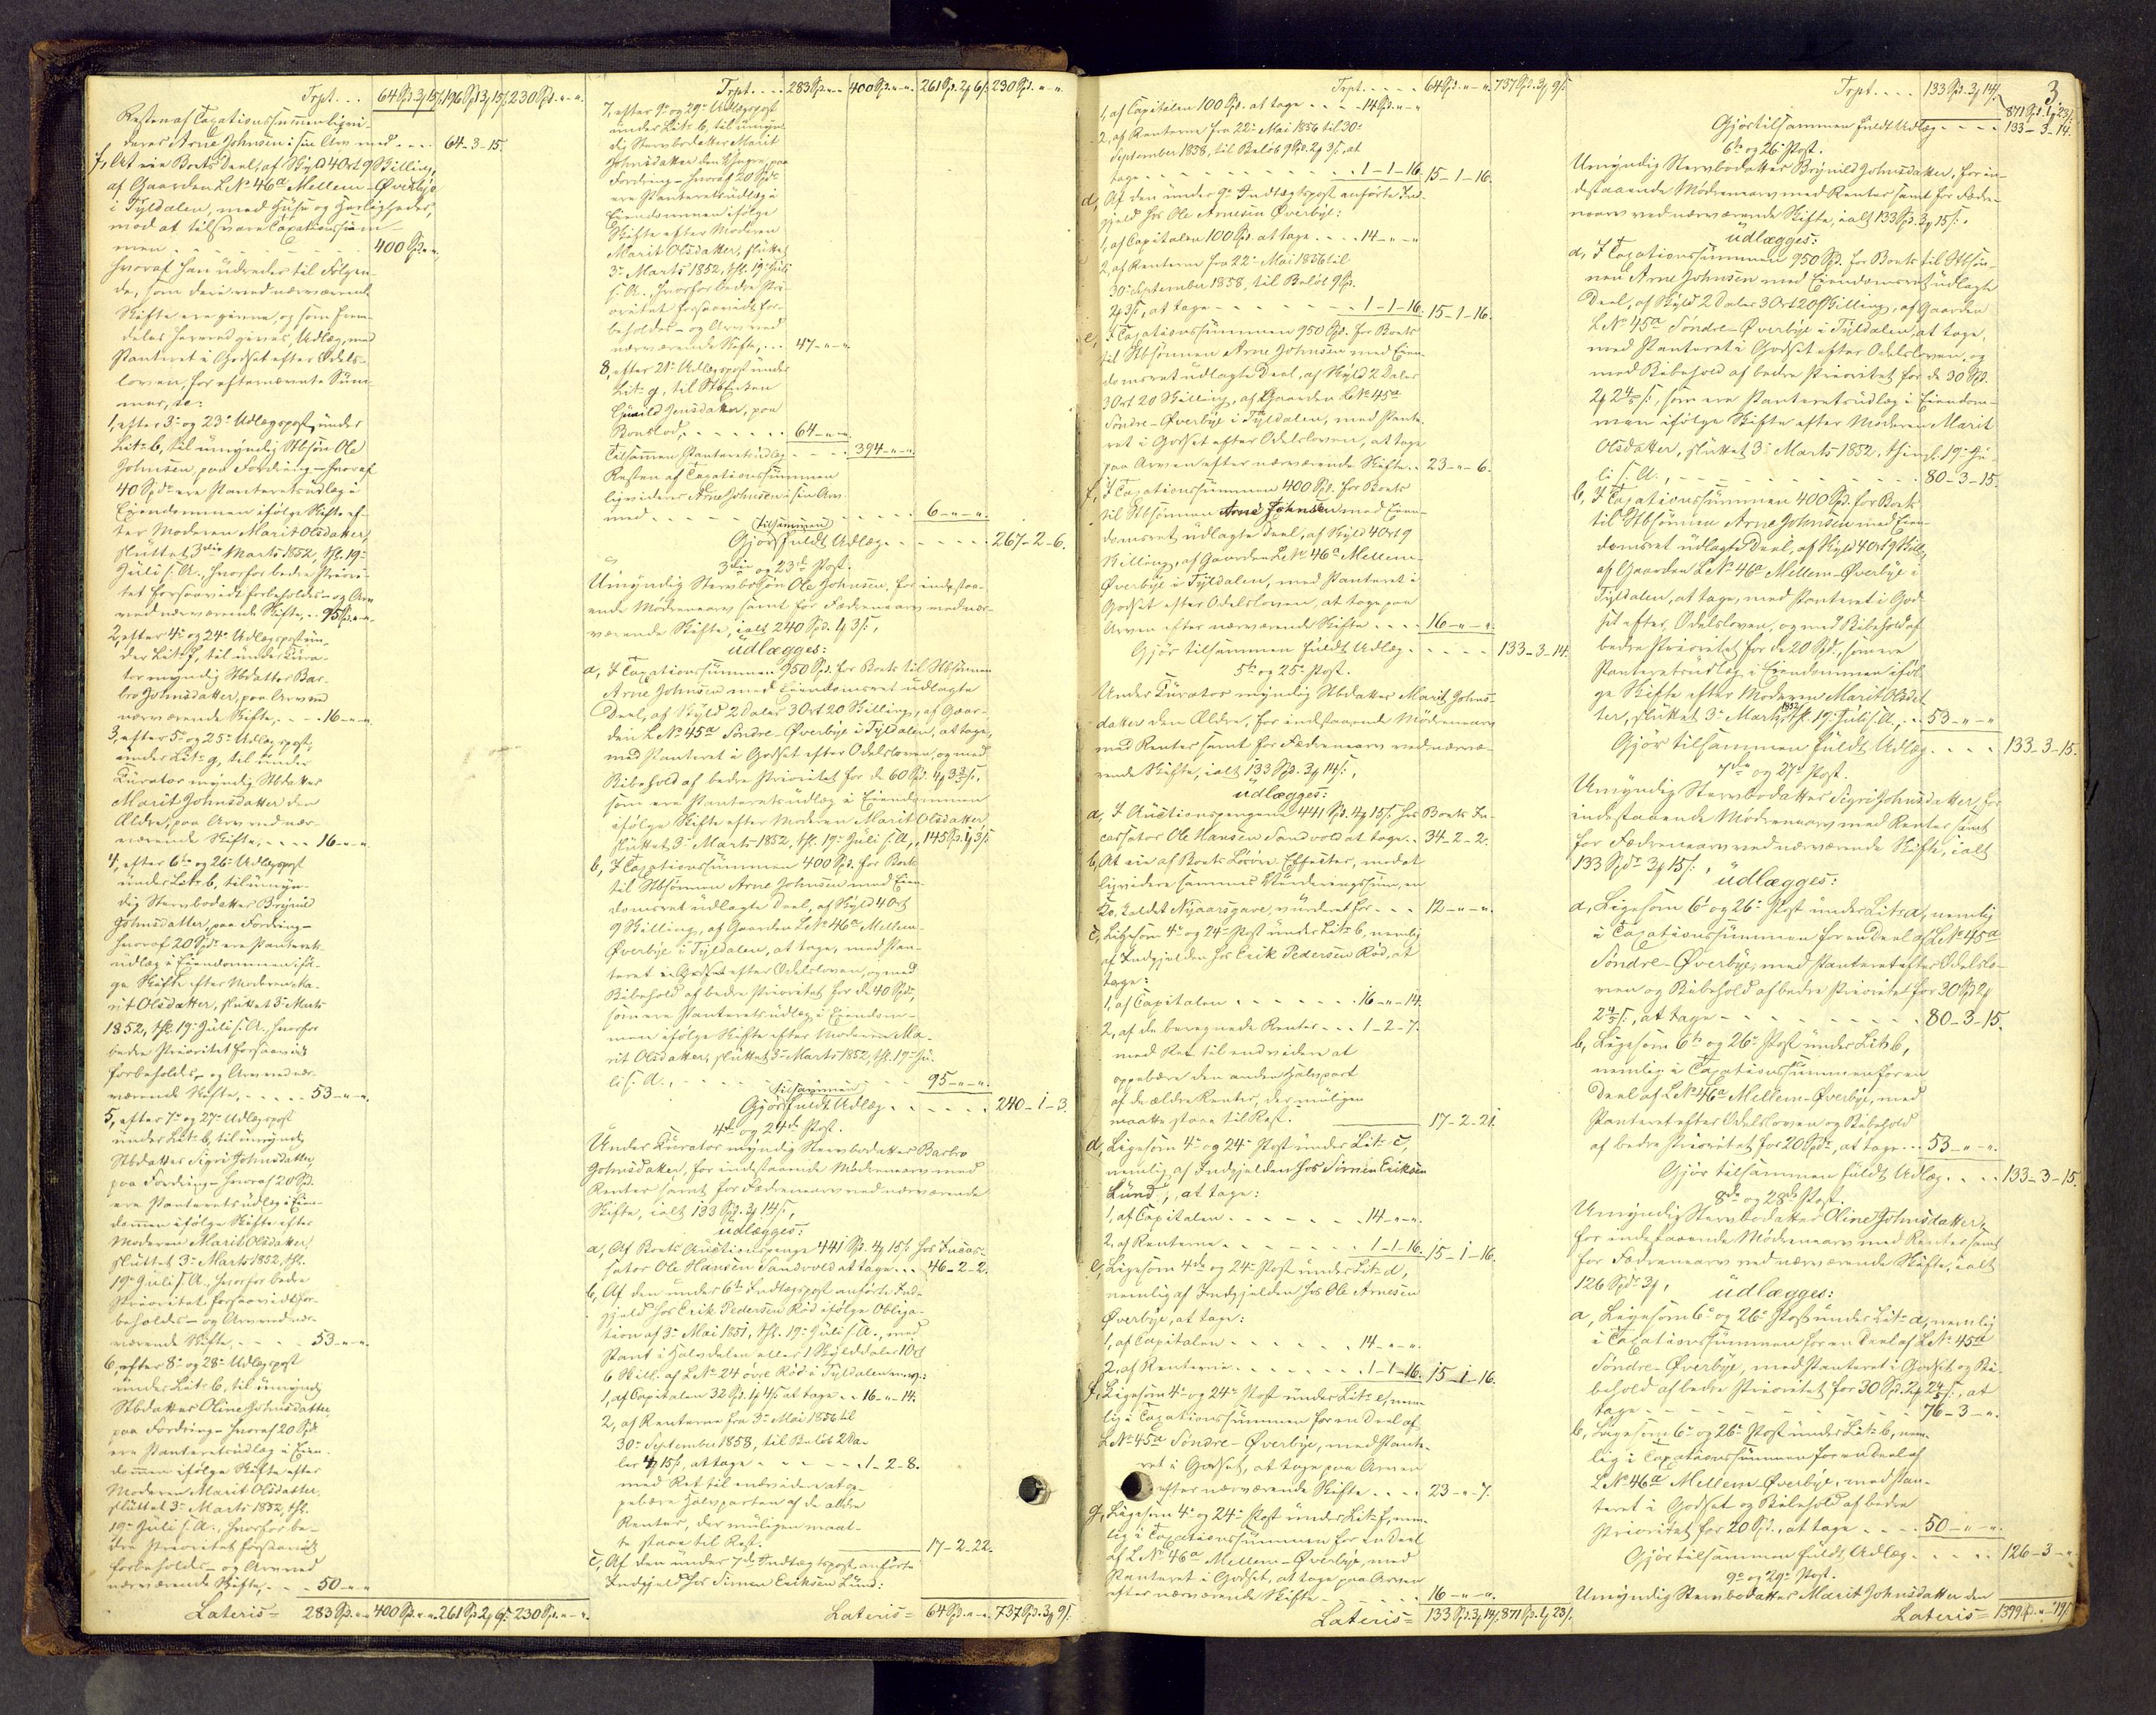 Trpt. . . 64 Spd. 3 ɟ 15 s. 196 Spd 3 ɟ 15 s. 230 Spd. „ - „
Resten af Taxationssummen liqvi-
derer Arne Johnsen i sin Arv med . . . . 64 - 3 - 15.
f, At eie Boets Deel, af Skyld 4 Ort 9 Skilling,
af Gaarden L.No 46a Mellem-Øverbye
i Tyldalen, med Huse og Herligheder,
mod at tilsvare Taxationssum-
men . . . 400 Spd. „ - „
hvoraf han udreder til Følgen-
de, som deri ved nærværende
Skifte ere givne, og som frem-
deles herved gives, Udlæg, med
Panteret i Godset efter Odels-
loven, for efternævnte Sum-
mer, sc:
1, efter 3die og 23de Udlægspost under
Lit: b, til umyndig Stbsøn Ole
Johnsen, paa Fordring - hvoraf
40 Spdr ere Panteretsudlæg i
Eiendommen ifølge Skifte ef-
ter Moderen Marit Olsdatter,
sluttet 3die Marts 1852, thl. 19de
Juli s. A., hvorfor bedre Priori-
tet forsaavidt forbeholdes - og Arv
ved nærværende Skifte, . . 95 Spd. „ - „
2, efter 4de og 24de Udlægspost un-
der Lit: f, til under Kura-
tor myndig Stbdatter Bar-
bro Johnsdatter, paa Arv ved
nærværende Skifte, . - . 16 - „ - „
3, efter 5te og 25de Udlægspost
under Lit: g, til under
Kurator myndig Stbdatter
Marit Johnsdatter den
Ældre, paa Arv ved nær-
værende Skifte, . . . . 16 - „ - „
4, efter 6te og 26de Udlægspost
under Lit: b, til umyn-
dig Stervbodatter Brynild
Johnsdatter, paa Fordring -
hvoraf 20 Spdr ere Panterets-
udlæg i Eiendommen iføl-
ge Skifte efter Moderen Ma-
rit Olsdatter, sluttet 3de Marts
1852, thl. 19de Juli s. A., hvorfor
bedre Prioritet forsaavidt
forbeholdes - og Arv ved nær-
værende Skifte, . . . . . 53 - „ - „
5, efter 7de og 27de Udlægspost
under Lit: b, til umyndig
Stbdatter Sigri Johnsdatter,
paa Fordring - hvoraf 20 Spd.
ere Panteretsudlæg i Eien-
dommen ifølge Skifte efter
Moderen Marit Olsdatter,
sluttet 3de Marts 1852, thl.
19de Juli s. A., hvorfor bedre
Prioritet forsaavidt for-
beholdes - og Arv ved nær-
værende Skifte, . . . . 53 - „ - „
6, efter 8de og 28de Udlægspost
under Lit: b, til umyndig
Stbdatter Oline Johnsdatter,
paa Fordring - hvoraf 20 Spdr
ere Panteretsudlæg i Eien-
dommen ifølge Skifte efter
Moderen Marit Olsdatter,
sluttet 3de Marts 1852, thl.
19de Juli s. A., hvorfor be-
dre Prioritet forsaavidt
forbeholdes - og Arv ved
nærværende Skifte, . . . 50 - „ - „
Lateris = 283 Spd. „ - „ 400 Spd. „ - „ 261 Spd. 2 ɟ 6 s. 230 Spd. „ - „
Trpt. . . . 283 Spd. „ - „ 400 Spd. „ - „ 261 Spd. 2 ɟ 6 s. 230 Spd. „ - „
7, efter 9de og 29de Udlægspost
under Lit: b, til umyn-
dig Stervbodatter Marit
Johnsdatter den Yngre, paa
Fordring - hvoraf 20 Spdr
ere Panteretsudlæg i
Eiendommen ifølge
Skifte efter Moderen
Marit Olsdatter, sluttet
3de Marts 1852, thl. 19de Juli
s. A., hvorfor bedre Pri-
oritet forsaavidt for-
beholdes - og Arv ved
nærværende Skifte, . . . 47 - „ - „
8, efter 21de Udlægspost under
Lit: g, til Stbenken
Gunild Jensdatter, paa
Boeslod, . . . . . . . 64 - „ - „
Tilsammen Panteretsudlæg . . . . 394 - „ - „
Resten af Taxationssummen
liqviderer Arne Johnsen i sin Arv
med . . . . . . 6 - „ - „
Gjør tilsammen fuldt Udlæg . . . . . . 267 - 2 - 6.
3die og 23de Post.
Umyndig Stervbosøn Ole Johnsen, for indestaa-
ende Mødrenearv samt for Fædrenearv ved nær-
værende Skifte, ialt 240 Spd. 1 ɟ 3 s.,
udlægges:
a, I Taxationssummen 950 Spd. for Boets til Stbsønnen
Arne Johnsen med Eiendomsret udlagte
Deel, af Skyld 2 Daler 3 Ort 20 Skilling, af Gaar-
den L.No 45a Søndre-Øverbye i Tyldalen, at tage,
med Panteret i Godset efter Odelsloven, og med
Bibehold af bedre Prioritet for de 60 Spd. 4 ɟ 3 3/5 s.,
som ere Panteretsudlæg i Eiendommen
ifølge Skifte efter Moderen Marit Olsdatter,
sluttet 3de Marts 1852, thl. 19de Juli s. A., 145 Spd. 1 ɟ 3 s.
b, I Taxationssummen 400 Spd. for Boets
til Stbsønnen Arne Johnsen med Eien-
domsret udlagte Deel, af Skyld 4 Ort
9 Skilling, af Gaarden L.No 46a Mellem-
Øverbye i Tyldalen, at tage, med Pan-
teret i Godset efter Odelsloven, og med
Bibehold af bedre Prioritet for de 40 Spdr,
som ere Panteretsudlæg i Eiendom-
men ifølge Skifte efter Moderen Ma-
rit Olsdatter, sluttet 3de Marts 1852, thl. 19de Ju-
li s. A., . . . . . 95 - „ - „
Gjør tilsammen fuldt Udlæg . . . . . . 240 - 1 - 3.
4de og 24de Post.
Under Kurator myndig Stervbodatter Barbro
Johnsdatter, for indestaaende Mødrenearv med
Renter samt for Fædrenearv ved nærværende
Skifte, ialt 133 Spd. 3 ɟ 14 s.,
udlægges:
a, Af Boets Auctionspenge 441 Spd. 4 ɟ 15 s. hos Incas-
sator Ole Hansen Sandvold at tage . . . 46 - 2 - 2.
b, Af den under 6te Indtægtspost anførte Ind-
gjeld hos Erik Pedersen Rød ifølge Obliga-
tion af 3de Mai 1851, thl. 19de Juli s. A., med
Pant i Halvdelen eller 1 Skylddaler 1 Ort
6 Skill. af L.No 24 øvre Rød i Tyldalen m.v.:
1, af Capitalen 32 Spd. 1 ɟ 4 s. at tage . . 16 - „ - 14.
2, af Renterne fra 3de Mai 1856 til
30te September 1858, til Beløb 2 Da-
ler 4 ɟ 15 s., at tage . . . . . 1 - 2 - 8.
med Ret til endvidere at op-
pebære Halvparten af de ældre
Renter, der muligen maat-
te staae til Rest. 17 - 2 - 22.
c, Af den under 7de Indtægtspost anførte
Indgjeld hos Simen Eriksen Lund:
Lateris = 64 Spd. „ - „ 737 Spd. 3 ɟ 9 s.
Trpt. . . . . 64 Spd. „ - „ 737 Spd. 3 ɟ 9 s.
1, af Capitalen 100 Spd. at tage . . . . 14 Spd. „ - „
2, af Renterne fra 22de Mai 1856 til 30te
September 1858, til Beløb 9 Spd. 2 ɟ 3 s., at
tage . . . . . . 1 - 1 - 16. 15 - 1 - 16.
d, Af den under 9de Indtægtspost anførte Ind-
gjeld hos Ole Arnesen Øverbye:
1, af Capitalen 100 Spd. at tage . . . . 14 - „ - „
2, af Renterne fra 22de Mai 1856 til
30te September 1858, til Beløb 9 Spd.
2 ɟ 3 s., at tage . . . . . 1 - 1 - 16. 15 - 1 - 16.
e, I Taxationssummen 950 Spd. for Boets
til Stbsønnen Arne Johnsen med Eien-
domsret udlagte Deel, af Skyld 2 Daler
3 Ort 20 Skilling, af Gaarden L.No 45a
Søndre-Øverbye i Tyldalen, med Pante-
ret i Godset efter Odelsloven, at tage
paa Arven efter nærværende Skifte . . 23 - „ - 6.
f, I Taxationssummen 400 Spd. for Boets
til Stbsønnen Arne Johnsen med Eien-
domsret udlagte Deel, af Skyld 4 Ort 9
Skilling, af Gaarden L.No 46a Mellem-
Øverbye i Tyldalen, med Panteret i
Godset efter Odelsloven, at tage paa
Arven efter nærværende Skifte . . . . 16 - „ - „
Gjør tilsammen fuldt Udlæg . . . . . 133 - 3 - 14.
5te og 25de Post.
Under Kurator myndig Stbdatter Marit Johns-
datter den Ældre, for indestaaende Mødrenearv
med Renter samt for Fædrenearv ved nærvæ-
rende Skifte, ialt 133 Spd. 3 ɟ 14 s.,
udlægges:
a, I Auctionspengene 441 Spd. 4 ɟ 15 s. hos Boets In-
cassator Ole Hansen Sandvold at tage . . 34 - 2 - 2.
b, At eie af Boets Løsøre-Effecter, mod at
liqvidere sammes Vurderingssum, en
Ko, kaldet Nyaarsgave, vurderet for . . . 12 - „ - „
c, Ligesom 4de og 24de Post under Lit: b, nemlig
af Indgjelden hos Erik Pedersen Rød, at
tage:
1, af Capitalen . . . . . . . 16 - „ - 14.
2, af de beregnede Renter . . . 1 - 2 - 7.
med Ret til endvidere at
oppebære den anden Halvpart
af de ældre Renter, der muligen
maatte staae til Rest. 17 - 2 - 21.
d, Ligesom 4de og 24de Post under Lit: c,
nemlig af Indgjelden hos Simen Eriksen
Lund, at tage:
1, af Capitalen . . . . . . 14 - „ - „
2, af Renterne . . . . . . 1 - 1 - 16. 15 - 1 - 16.
e, Ligesom 4de og 24de Post under Lit: d,
nemlig af Indgjelden hos Ole Arnesen
Øverbye, at tage:
1, af Capitalen . . . . . . 14 - „ - „
2, af Renterne . . . . . . 1 - 1 - 16. 15 - 1 - 16.
f, Ligesom 4de og 24de Post under Lit: e, nem-
lig i Taxationssummen for en Deel af
L.No 45a Søndre-Øverbye, med Pante-
ret i Godset, at tage paa Arven
efter nærværende Skifte . . . . 23 - „ - 7.
g, Ligesom 4de og 24de Post under Lit: f, nem-
lig i Taxationssummen for en Deel
af L.No 46a Mellem-Øverbye, med
Panteret i Godset, at tage paa Arven
efter nærværende Skifte . . . . 16 - „ - „
Lateris = 133 Spd. 3 ɟ 14 s. 871 Spd. 1 ɟ 23 s.
3
Trpt. . . . . 133 Spd. 3 ɟ 14 s. 871 Spd. 1 ɟ 23 s.
Gjør tilsammen fuldt Udlæg . . . . 133 - 3 - 14.
6te og 26de Post.
Umyndig Stervbodatter Brynild Johnsdatter, for in-
destaaende Mødrenearv med Renter samt for Fædre-
nearv ved nærværende Skifte, ialt 133 Spd. 3 ɟ 15 s.,
udlægges:
a, I Taxationssummen 950 Spd. for Boets til Stbsøn-
nen Arne Johnsen med Eiendomsret udlagte
Deel, af Skyld 2 Daler 3 Ort 20 Skilling, af Gaarden
L.No 45a Søndre-Øverbye i Tyldalen, at tage,
med Panteret i Godset efter Odelsloven, og
med Bibehold af bedre Prioritet for de 30 Spd.
2 ɟ 2 4/5 s., som ere Panteretsudlæg i Eiendom-
men ifølge Skifte efter Moderen Marit
Olsdatter, sluttet 3de Marts 1852, thingl. 19de Ju-
li s. A., . . . . . . 80 - 3 - 15.
b, I Taxationssummen 400 Spd. for Boets
til Stbsønnen Arne Johnsen med Eien-
domsret udlagte Deel, af Skyld 4 Ort 9 Skill.,
af Gaarden L.No 46a Mellem-Øverbye i
Tyldalen, at tage, med Panteret i God-
set efter Odelsloven, og med Bibehold af
bedre Prioritet for de 20 Spd., som ere
Panteretsudlæg i Eiendommen iføl-
ge Skifte efter Moderen Marit Olsdat-
ter, sluttet 3de Marts 1852, thl. 19de Juli s. A., . . 53 - „ - „
Gjør tilsammen fuldt Udlæg . . . . 133 - 3 - 15.
7de og 27de Post.
Umyndig Stervbodatter Sigri Johnsdatter, for
indestaaende Mødrenearv med Renter samt
for Fædrenearv ved nærværende Skifte, ialt
133 Spdr 3 ɟ 15 s., udlægges:
a, Ligesom 6te og 26de Post under Lit: a, nemlig
i Taxationssummen for en Deel af L.No 45a
Søndre-Øverbye, med Panteret efter Odelslo-
ven og Bibehold af bedre Prioritet for 30 Spd 2 ɟ
2 4/5 s., at tage . . . . . . 80 - 3 - 15.
b, Ligesom 6te og 26de Post under Lit: b,
nemlig i Taxationssummen for en
Deel af L.No 46a Mellem-Øverbye, med
Panteret efter Odelsloven og Bibehold
af bedre Prioritet for 20 Spdr, at tage . . . 53 - „ - „
Gjør tilsammen fuldt Udlæg . . . . 133 - 3 - 15.
8de og 28de Post.
Umyndig Stervbodatter Oline Johnsdatter,
for indestaaende Mødrenearv med Renter samt
for Fædrenearv ved nærværende Skifte, ialt
126 Spdr 3 ɟ, udlægges:
a, Ligesom 6te og 26de Post under Lit: a, nemlig
i Taxationssummen for en Deel af L.No 45a
Søndre-Øverbye, med Panteret i Godset og Bi-
behold af bedre Prioritet for 30 Spd. 2 ɟ 2 4/5 s., at
tage . . . . . . 76 - 3 - „
b, Ligesom 6te og 26de Post under Lit: b, nem-
lig i Taxationssummen for en Deel af
L.No 46a Mellem-Øverbye, med Pan-
teret i Godset og Bibehold af bedre
Prioritet for 20 Spd., at tage . . . . 50 - „ - „
Gjør tilsammen fuldt Udlæg . . . . . 126 - 3 - „
9de og 29de Post.
Umyndig Stervbodatter Marit Johnsdatter den
Lateris = 1399 Spd. „ - 19 s.